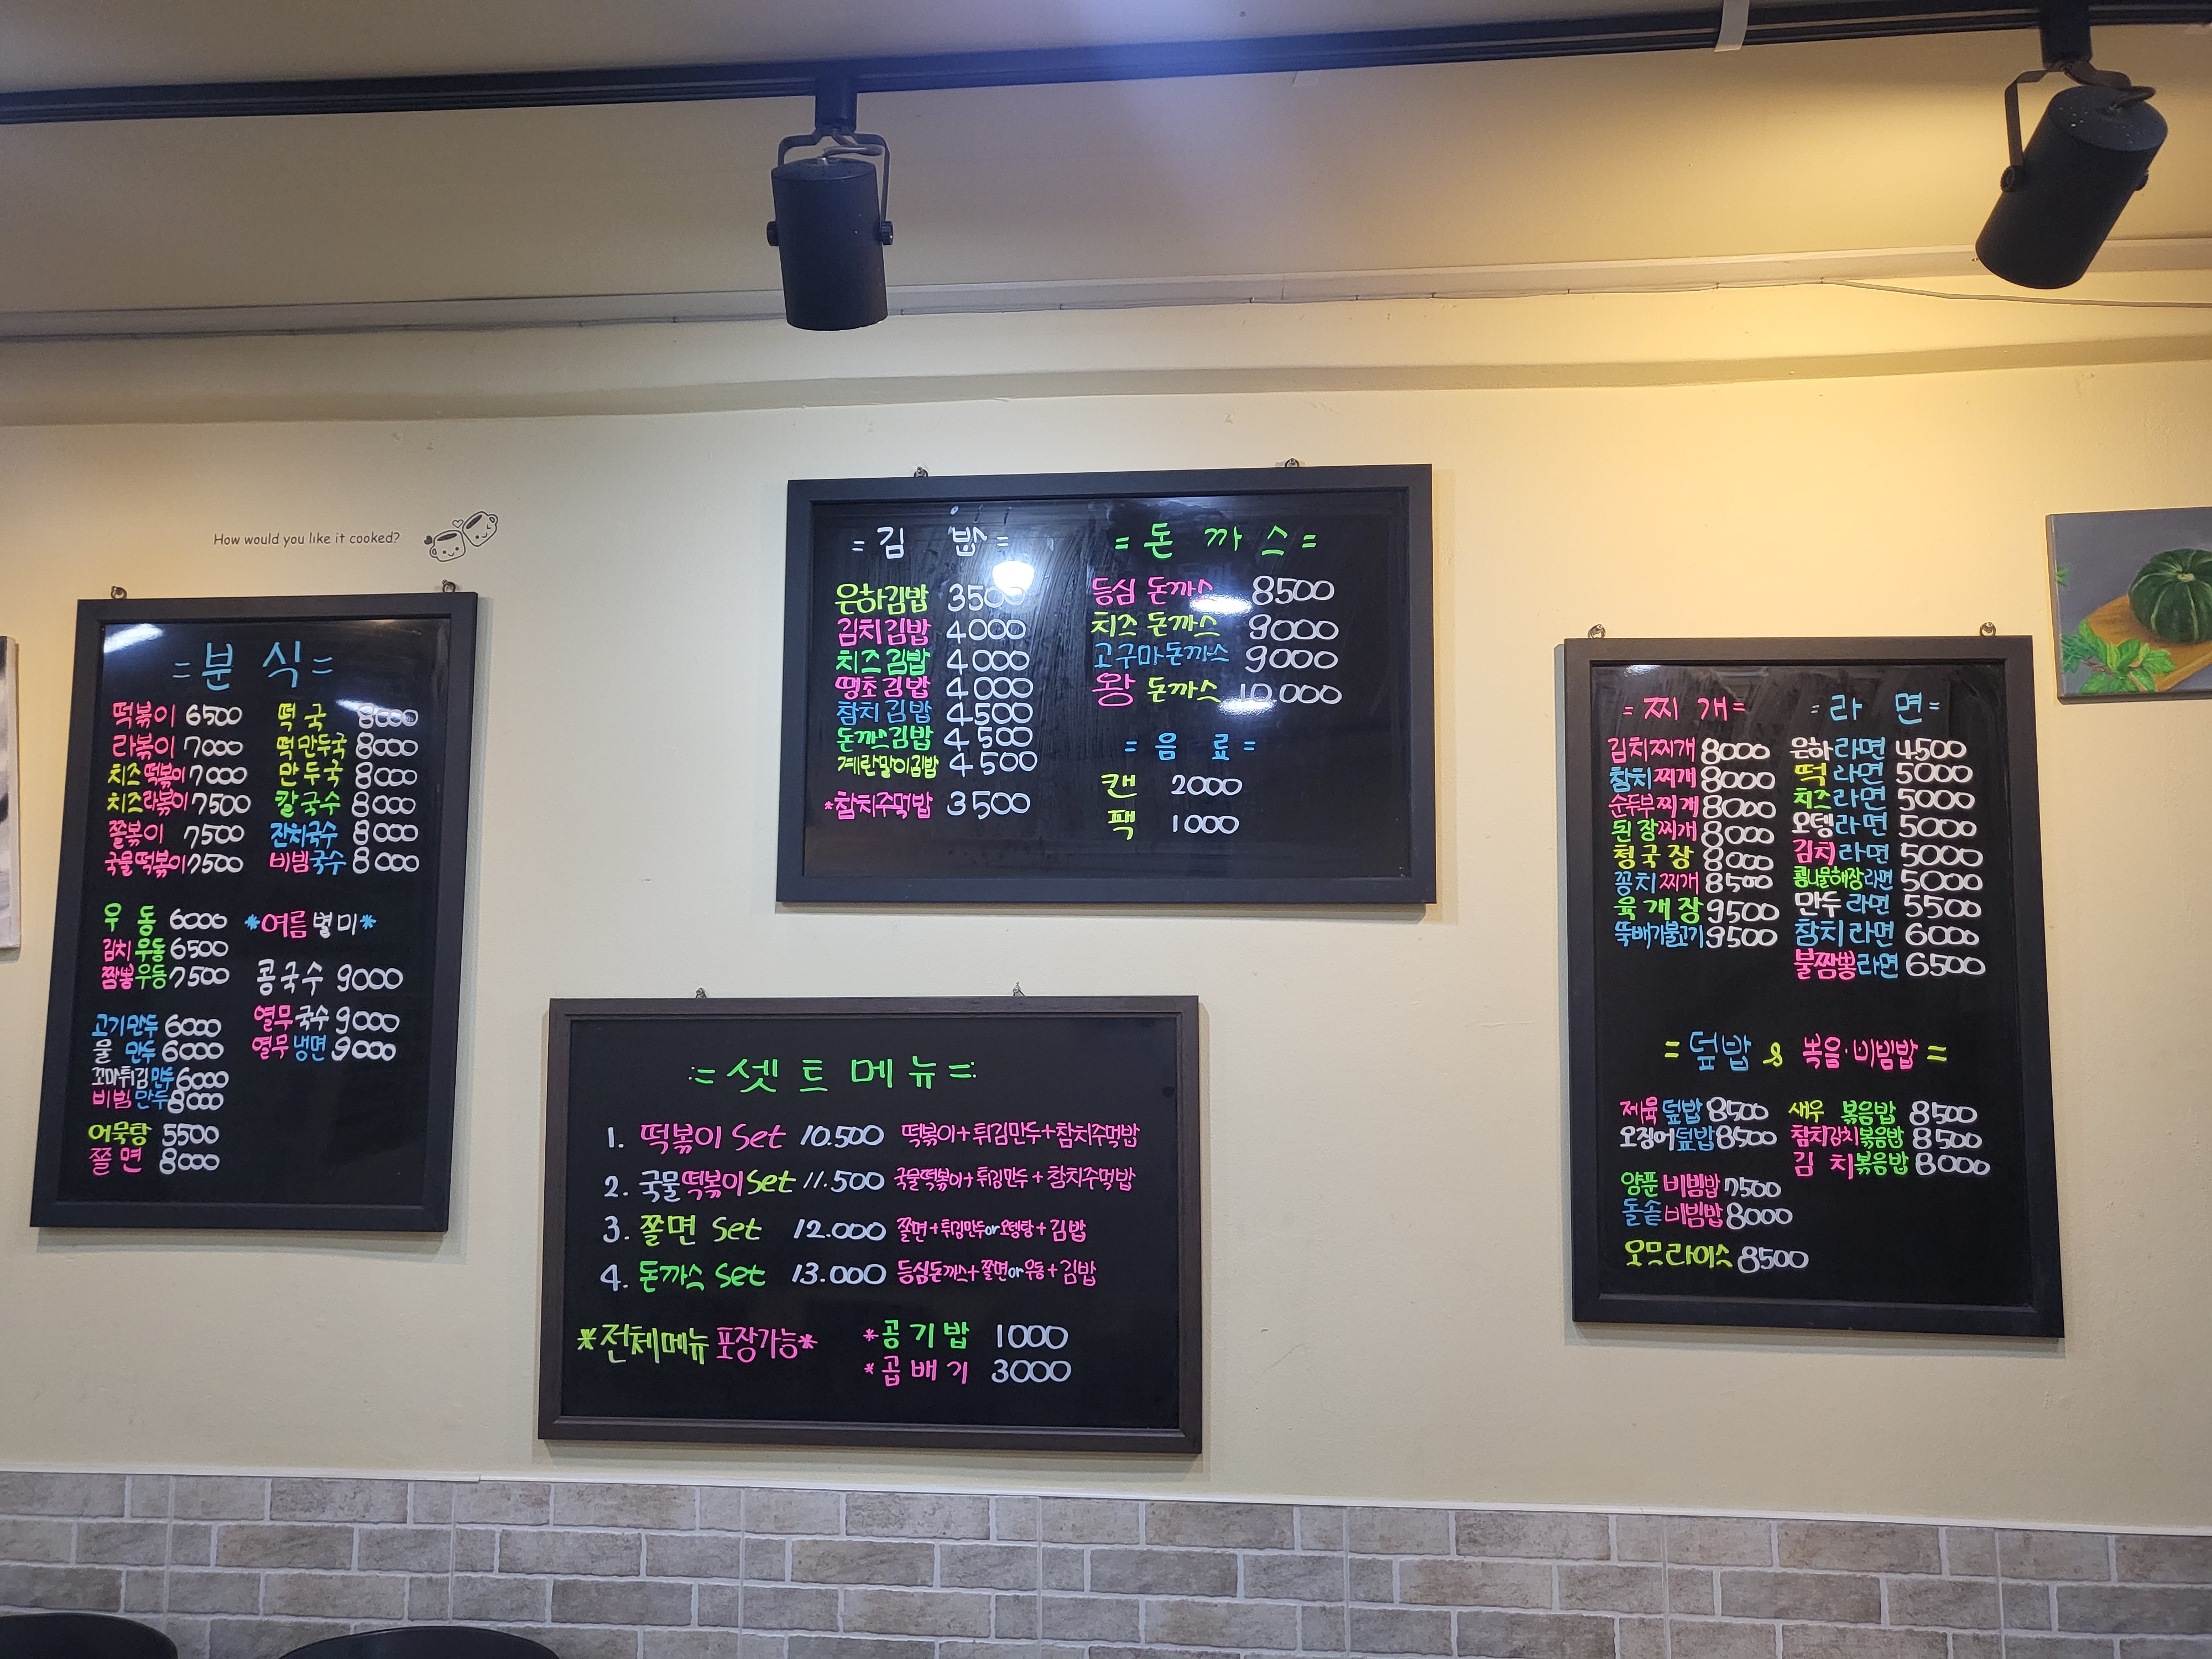 How would you like it cooked?
=분 식=
떡볶이 6500
라볶이 7000
치즈떡볶이 7000
치즈라볶이 7500
쫄볶이 7500
국물떡볶이 7500
우 동 6000
김치우동 6500
짬뽕우동 7500
고기만두 6000
물 만두 6000
꼬마튀김만두 6000
비빔만두 8000
어묵탕 5500
쫄면 8000
떡국 8000
떡만두국 8000
만두국 8000
칼국수 8000
잔치국수 8000
비빔국수 8000
*여름별미*
콩국수 9000
열무국수 9000
열무냉면 9000
=김 밥=
은하김밥 3500
김치김밥 4000
치즈김밥 4000
땡초김밥 4000
참치김밥 4500
돈까스김밥 4500
계란말이김밥 4500
*참치주먹밥 3500
=돈 까 스=
등심 돈까스 8500
치즈 돈까스 9000
고구마돈까스 9000
왕 돈까스 10.000
=음 료=
캔 2000
팩 1000
=셋 트 메 뉴=
1. 떡볶이 Set 10.500 떡볶이+튀김만두+참치주먹밥
2. 국물떡볶이 Set 11.500 국물떡볶이+튀김만두+참치주먹밥
3. 쫄면 Set 12.000 쫄면+튀김만두or오뎅탕+김밥
4. 돈까스 Set 13.000 등심돈까스+쫄면or우동+김밥
*전체메뉴 포장가능*
*공기밥 1000
*곱배기 3000
=찌 개=
김치찌개 8000
참치찌개 8000
순두부찌개 8000
된장찌개 8000
청국장 8000
꽁치찌개 8500
육개장 9500
뚝배기불고기 9500
=라 면=
은하라면 4500
떡라면 5000
치즈라면 5000
오뎅라면 5000
김치라면 5000
콩나물해장라면 5000
만두라면 5500
참치라면 6000
불짬뽕라면 6500
=덮밥 & 볶음·비빔밥=
제육덮밥 8500
오징어덮밥 8500
양푼비빔밥 7500
돌솥비빔밥 8000
오므라이스 8500
새우 볶음밥 8500
참치김치볶음밥 8500
김 치볶음밥 8000